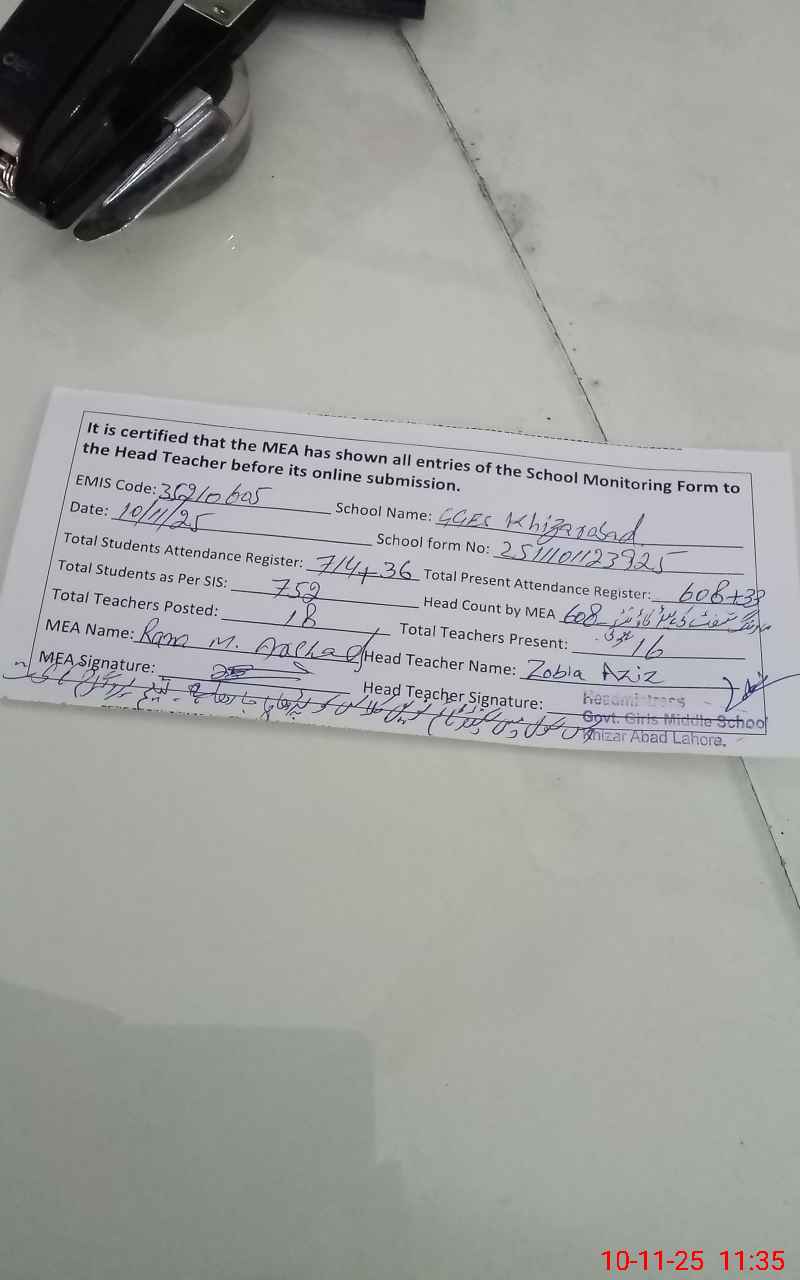 It is certified that the MEA has shown all entries of the School Monitoring Form to
the Head Teacher before its online submission.
EMIS Code: 35210605 School Name: GGES Khizarabad
Date: 10/11/25 School form No: 2511101123925
Total Students Attendance Register: 714+36 Total Present Attendance Register: 608+33
Total Students as Per SIS: 752 Head Count by MEA 608
Total Teachers Posted: 18 Total Teachers Present: 16
MEA Name: Rana M. Arshad Head Teacher Name: Zobia Aziz
MEA Signature: Head Teacher Signature:
Headmistress
Govt. Girls Middle School
Khizar Abad Lahore.
10-11-25 11:35